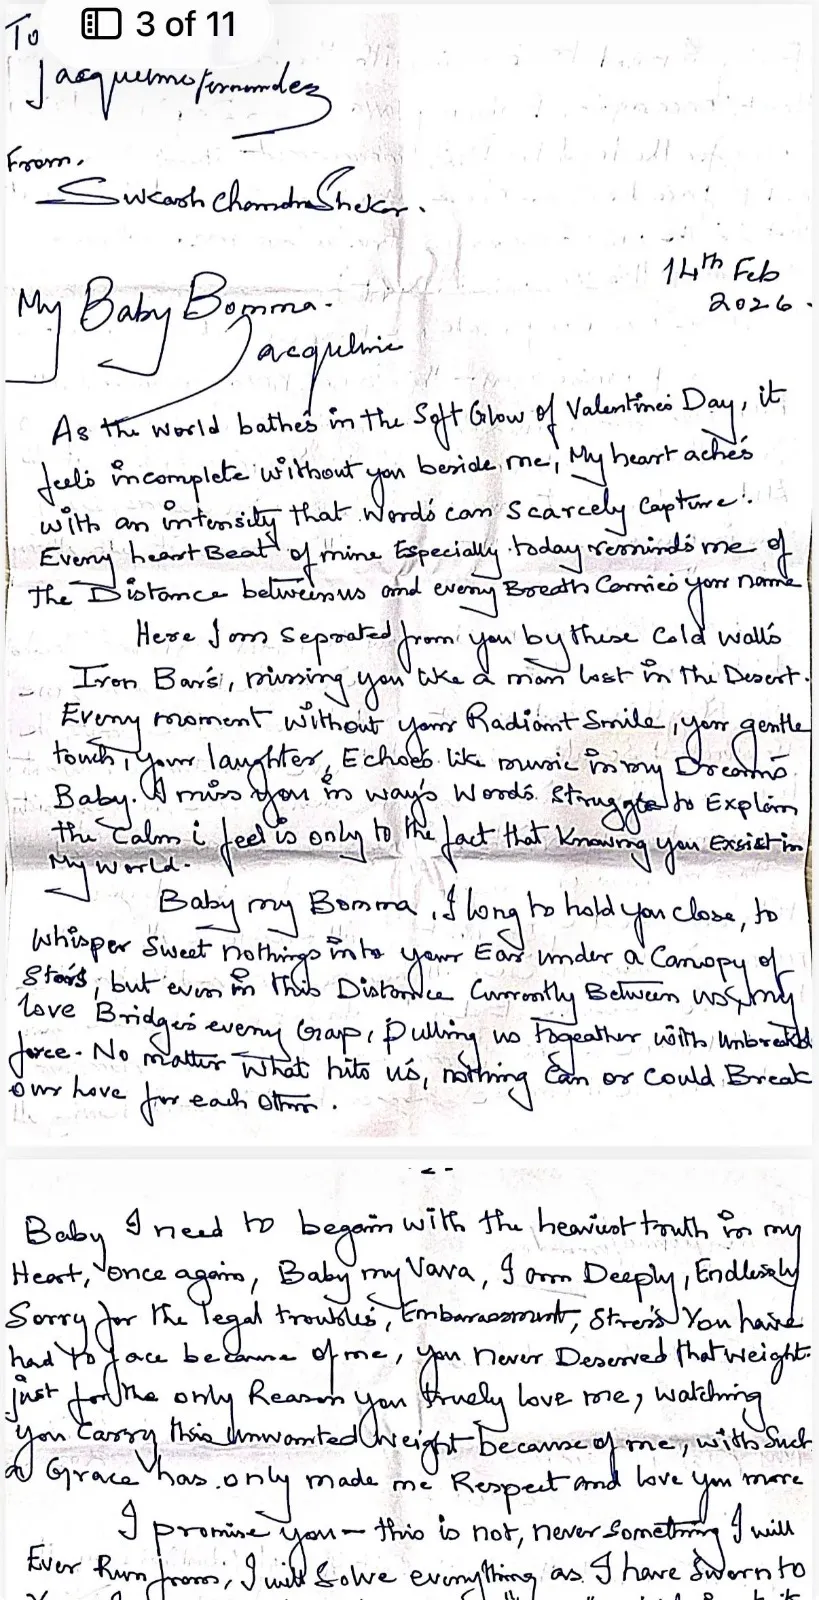 3 of 11
To
Jacqueline Fernandez
From.
Sukash Chandra Shekar.
14th Feb
2026.
My Baby Bomma.
Jacqueline
As the world bathes in the Soft Glow of Valentines Day, it
feels incomplete without you beside me, My heart aches
with an intensity that words can Scarcely Capture!.
Every heart Beat of mine Especially today reminds me of
the Distance between us and every Breath Carries your name
Here I am Seprated from you by these Cold walls
Iron Bars, missing you like a man lost in the Desert.
Every moment without your Radiant Smile, your gentle
touch, your laughter, Echoes like music in my Dreams
Baby. I miss you in ways Words Struggle to Explain
the Calm i feel is only to the fact that Knowing you Exsist in
My World.
Baby my Bomma, I long to hold you close, to
Whisper Sweet nothings into your Ear under a Canopy of
Stars, but even in this Distance Currently Between us, my
love Bridges every Gap, Pulling us togeather with
force. No matter what hits us, nothing Can or Could Break
our love for each other.
-2-
Baby I need to begain with the heaviest truth in my
Heart, once again, Baby my Vava, I am Deeply, Endlessly
Sorry for the legal troubles, Embarassment, Stress You have
had to face because of me, you never Deserved that weight.
just for the only Reason you truely love me, watching
you Carry this Unwanted Weight because of me, with Such
a Grace has only made me Respect and love you more
I promise you - this is not, never Something I will
Ever Run from, I will Solve everything as I have Sworn to